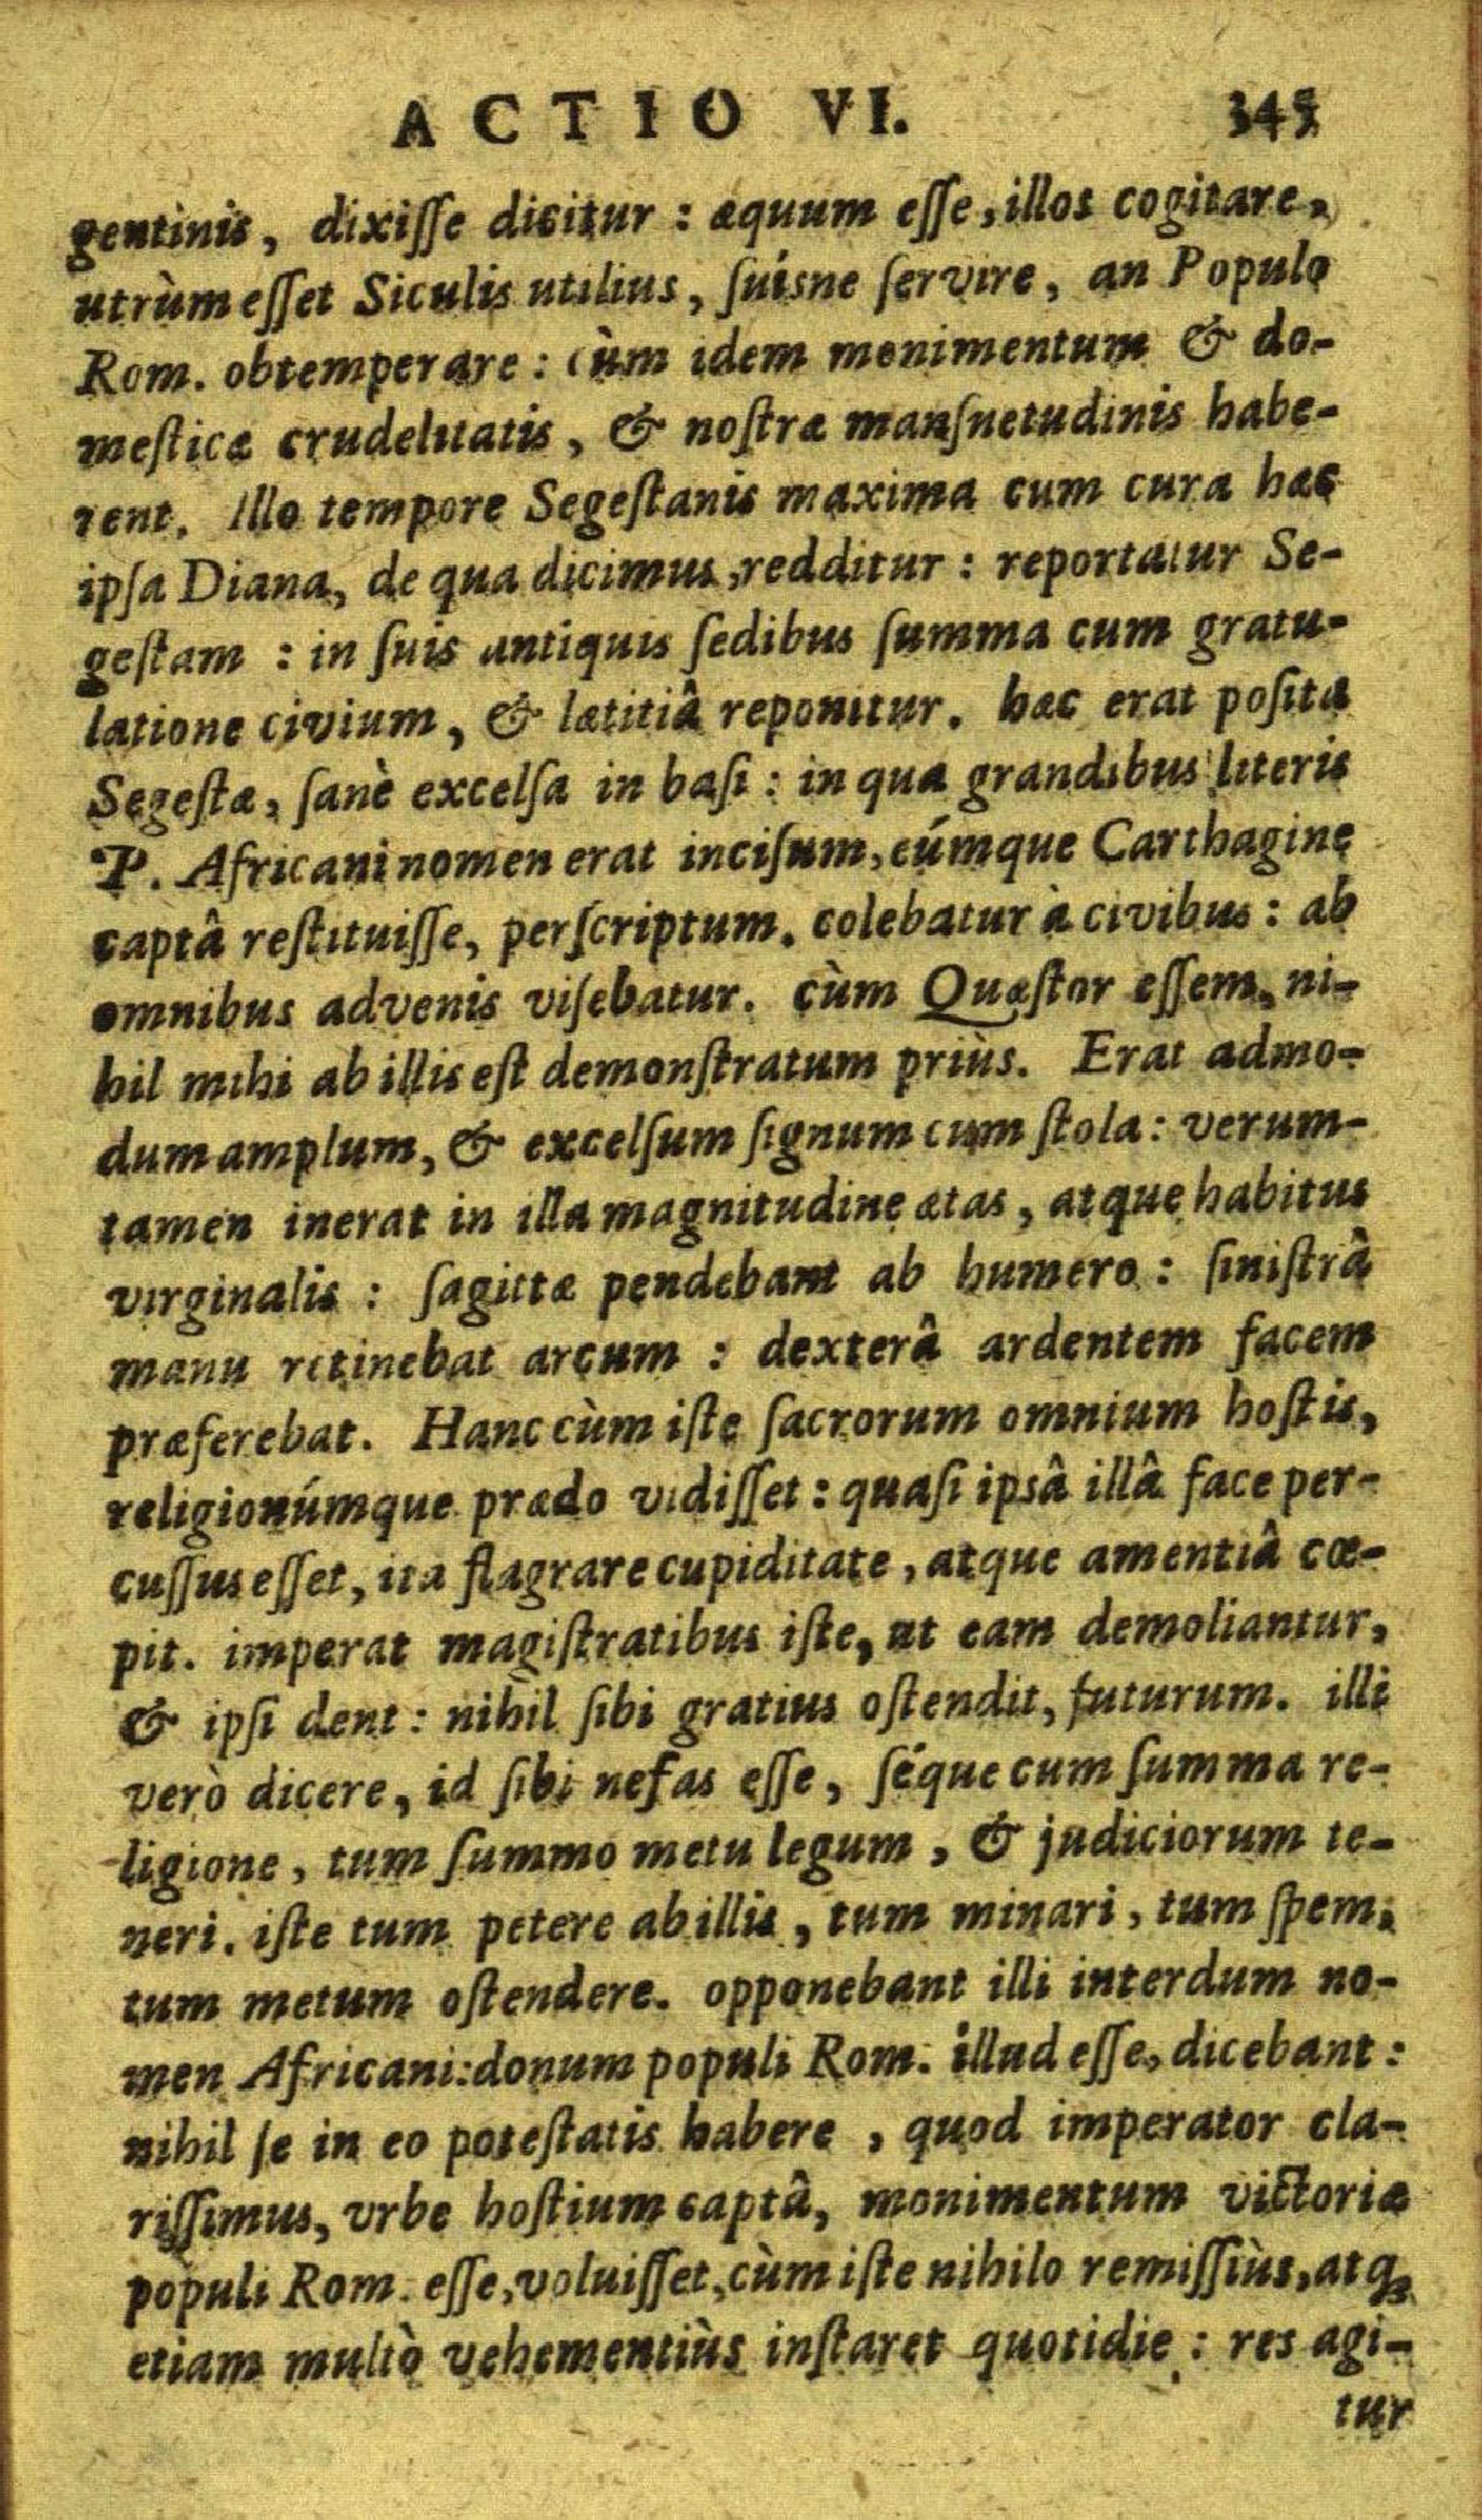 ACTIO VI. 345
gentinis, dixiſſe dicitur : æquum eſſe, illos cogitare,
utrùm eſſet Siculis utilius, ſuísne ſervire, an Populo
Rom. obtemperare : cùm idem monimentum & do-
meſticæ crudelitatis, & noſtræ manſuetudinis habe-
rent. Illo tempore Segeſtanis maxima cum cura hæc
ipſa Diana, de qua dicimus, redditur : reportatur Se-
geſtam : in ſuis antiquis ſedibus ſumma cum gratu-
latione civium, & lætitiâ reponitur. hæc erat poſita
Segeſtæ, ſanè excelſa in baſi : in qua grandibus literis
P. Africani nomen erat inciſum, eúmque Carthagine
captâ reſtituiſſe, perſcriptum. colebatur à civibus : ab
omnibus advenis viſebatur. cùm Quæſtor eſſem, ni-
hil mihi ab illis eſt demonſtratum priùs. Erat admo-
dum amplum, & excelſum ſignum cum ſtola : verum-
tamen inerat in illa magnitudine ætas, atque habitus
virginalis : ſagittæ pendebant ab humero : ſiniſtrâ
manu retinebat arcum : dexterâ ardentem facem
præferebat. Hanc cùm iſte ſacrorum omnium hoſtis,
religionúmque prædo vidiſſet : quaſi ipsâ illâ face per-
cuſſus eſſet, ita flagrare cupiditate, atque amentiâ cœ-
pit. imperat magiſtratibus iſte, ut eam demoliantur,
& ipſi dent : nihil ſibi gratius oſtendit, futurum. illi
verò dicere, id ſibi nefas eſſe, ſéque cum ſumma re-
ligione, tum ſummo metu legum, & judiciorum te-
neri. iſte tum petere ab illis, tum minari, tum ſpem,
tum metum oſtendere. opponebant illi interdum no-
men Africani : donum populi Rom. illud eſſe, dicebant :
nihil ſe in eo poteſtatis habere, quod imperator cla-
riſſimus, vrbe hoſtium captâ, monimentum victoriæ
populi Rom. eſſe, voluiſſet, cùm iſte nihilo remiſſiùs, atq;
etiam multò vehementiùs inſtaret quotidie : res agi-
tur